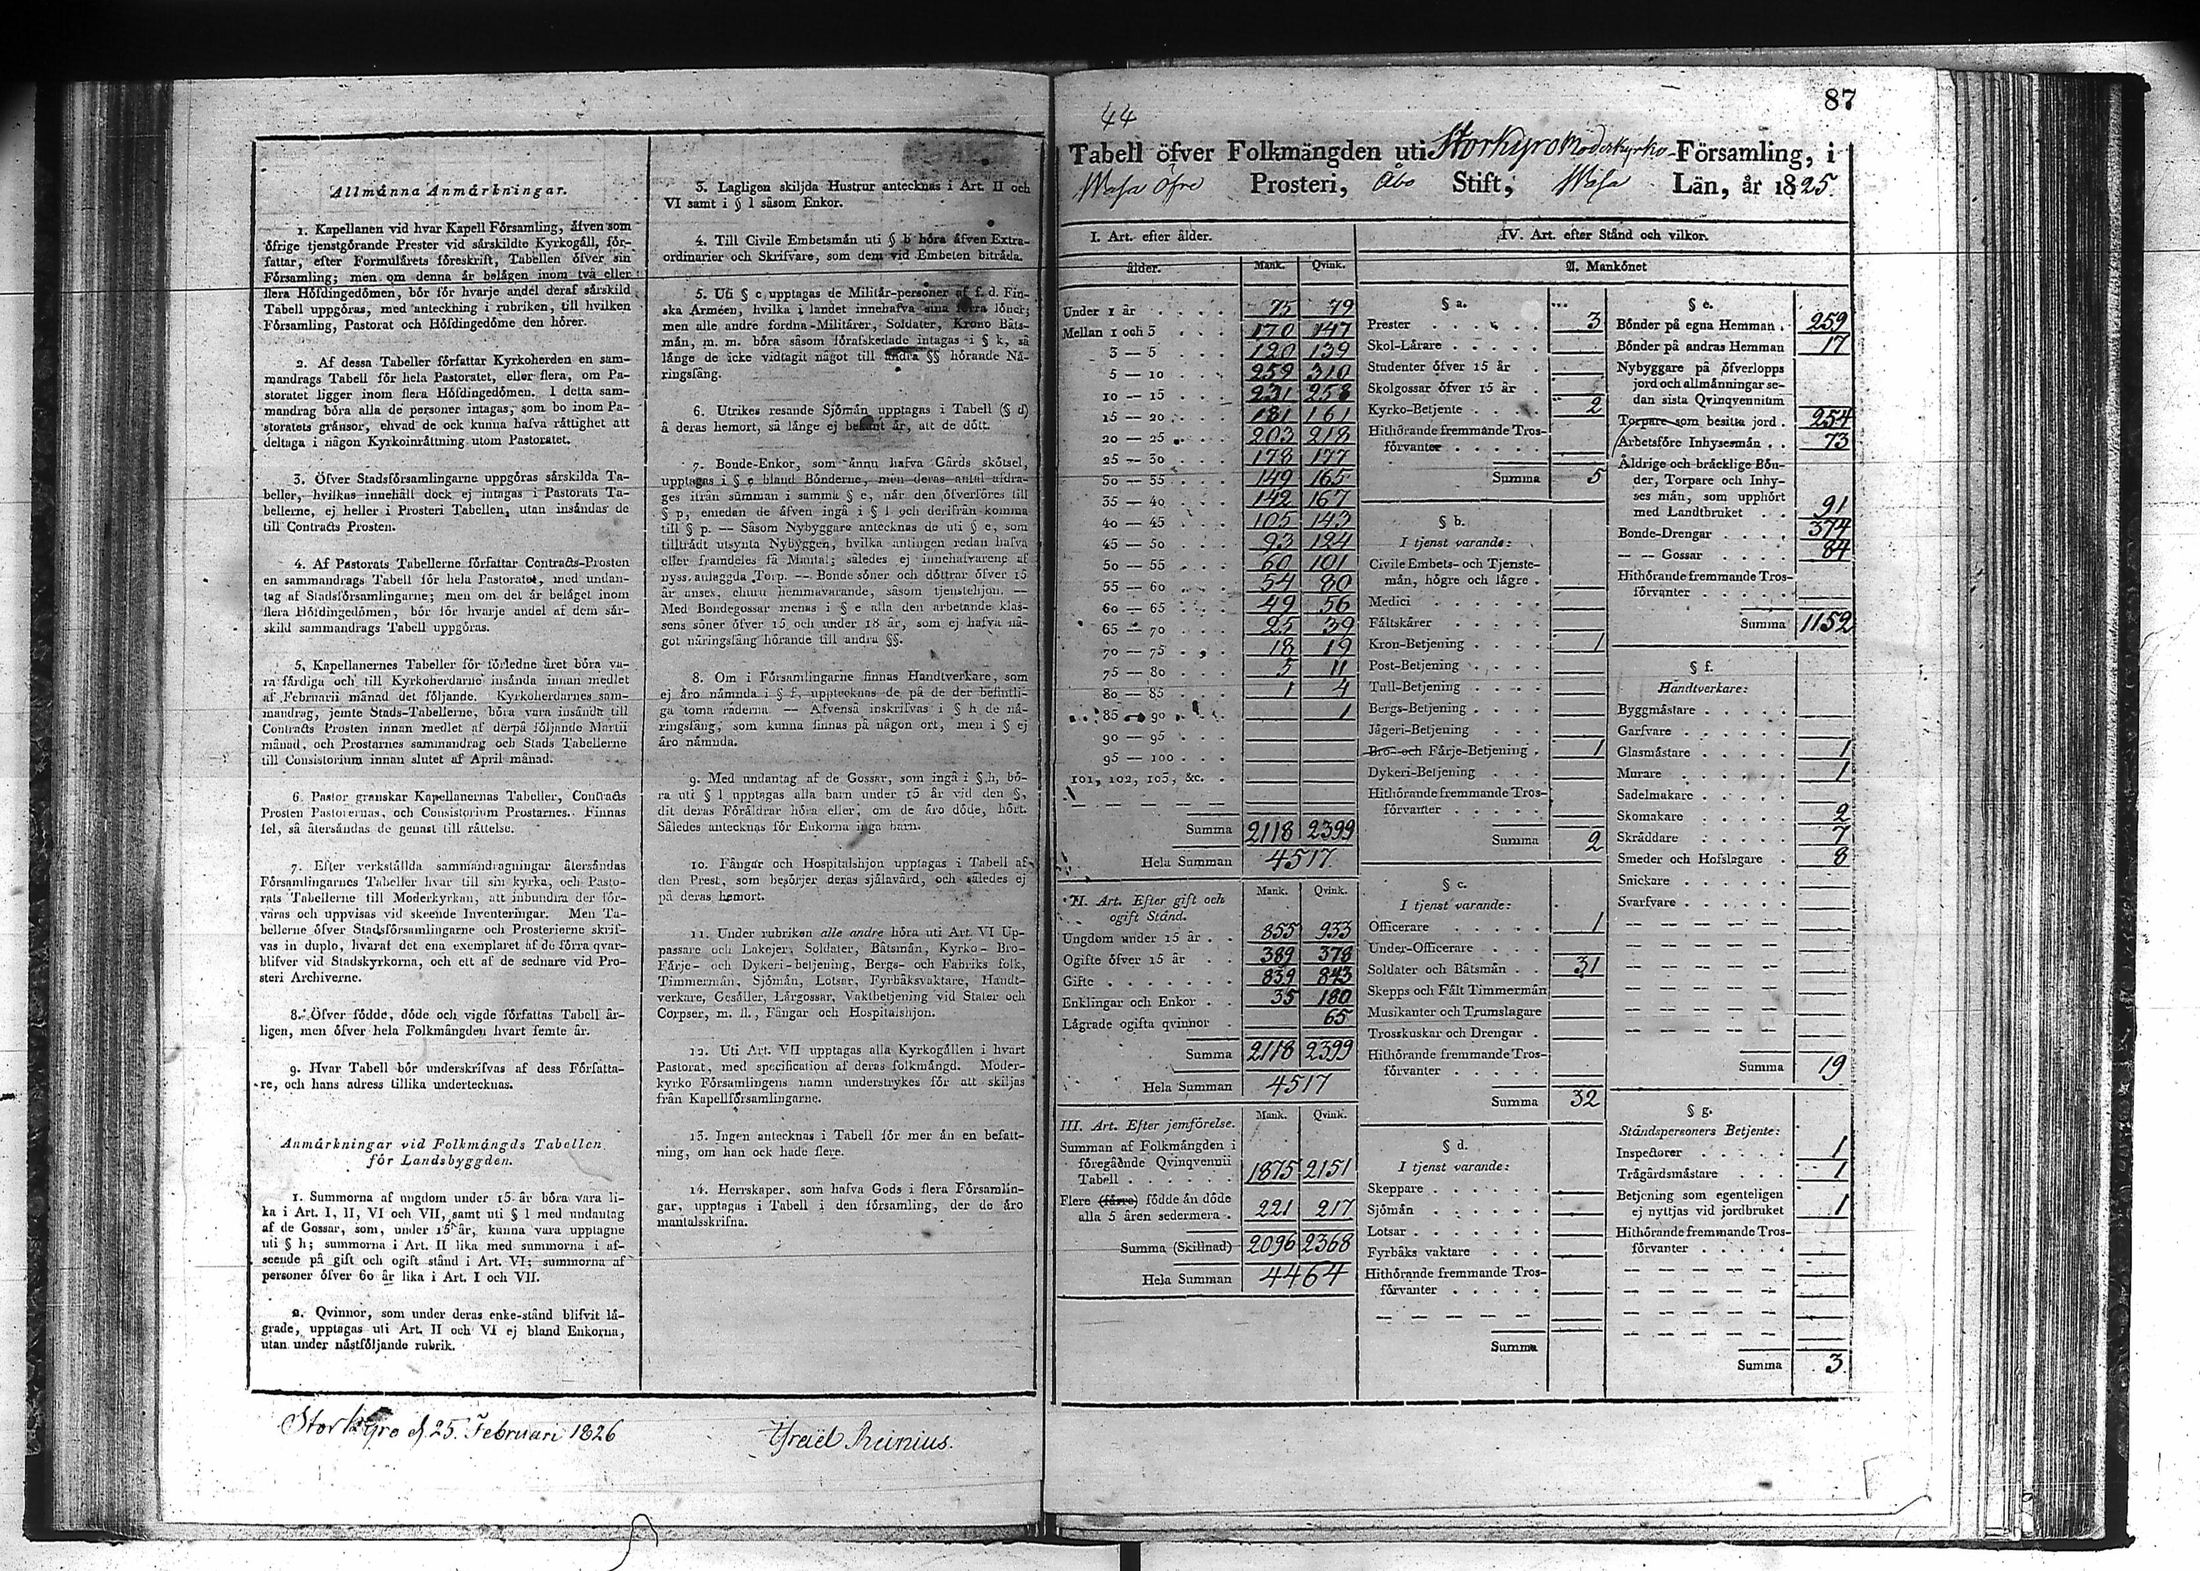 Allmänna Anmärkningar.
1. Kapellanen vid hvar Kapell Församling, äfven som
öfrige tjenstgörande Prester vid särskildte Kyrkogäll, för-
fattar, efter Formulärets föreskrift, Tabellen öfver sin
Församling; men om denna är belägen inom två eller
flera Höfdingedömen, bör för hvarje andel deraf särskild
Tabell uppgöras, med anteckning i rubriken, till hvilken
Församling, Pastorat och Höfdingedöme den hörer.
2. Af dessa Tabeller författar Kyrkoherden en sam-
mandrags Tabell för hela Pastoratet, eller flera, om Pa-
storatet ligger inom flera Höfdingedömen. I detta sam-
mandrag böra alla de personer intagas, som bo inom Pa-
storatets gränsor, ehvad de ock kunna hafva rättighet att
deltaga i någon Kyrkoinrättning utom Pastoratet.
3. Öfver Stadsförsamlingarne uppgöras särskilda Ta-
beller, hvilkas innehåll dock ej intagas i Pastorats Ta-
bellerne, ej heller i Prosteri Tabellen, utan insändas de
till Contracts Prosten.
4. Af Pastorats Tabellerne författar Contracts-Prosten
en sammandrags Tabell för hela Pastoratet, med undan-
tag af Stadsförsamlingarne; men om det är beläget inom
flera Höfdingedömen, bör för hvarje andel af dem sär-
skild sammandrags Tabell uppgöras.
5. Kapellanernes Tabeller för förledne året böra va-
ra färdiga och till Kyrkoherdarne insända innan medlet
af Februarii månad det följande. Kyrkoherdarnes sam-
mandrag, jemte Stads-Tabellerne, böra vara insände till
Contracts Prosten innan medlet af derpå följande Martii
månad, och Prostarnes sammandrag och Stads Tabellerne
till Consistorium innan slutet af April månad.
6. Pastor granskar Kapellanernas Tabeller, Contracts
Prosten Pastorernas, och Consistorium Prostarnes. Finnas
fel, så återsändas de genast till rättelse.
7. Efter verkställda sammandragningar återsändas
Församlingarnes Tabeller hvar till sin kyrka, och Pasto-
rats Tabellerne till Moderkyrkan, att inbundna der för-
varas och uppvisas vid skeende Inventeringar. Men Ta-
bellerne öfver Stadsförsamlingarne och Prosterierne skrif-
vas in duplo, hvaraf det ena exemplaret af de förra qvar-
blifver vid Stadskyrkorna, och ett af de sednare vid Pro-
steri Archiverne.
8. Öfver födde, döde och vigde författas Tabell år-
ligen, men öfver hela Folkmängden hvart femte år.
9. Hvar Tabell bör underskrifvas af dess Författa-
re, och hans adress tillika undertecknas.
Anmärkningar vid Folkmängds Tabellen
för Landsbyggden.
1. Summorna af ungdom under 15 år böra vara li-
ka i Art. I, II, VI och VII, samt uti § l med undantag
af de Gossar, som, under 15 år, kunna vara upptagne
uti § h; summorna i Art. II lika med summorna i af-
seende på gift och ogift stånd i Art. VI; summorna af
personer öfver 60 år lika i Art. I och VII.
2. Qvinnor, som under deras enke-stånd blifvit lä-
grade, upptagas uti Art. II och VI ej bland Enkorna,
utan under nästföljande rubrik.
3. Lagligen skiljda Hustrur antecknas i Art. II och
VI samt i § l såsom Enkor.
4. Till Civile Embetsmän uti § b böra äfven Extra-
ordinarier och Skrifvare, som dem vid Embeten biträda.
5. Uti § c upptagas de Militär-personer af f. d. Fin-
ska Arméen, hvilka i landet innehafva sina förra löner;
men alle andre fordna-Militärer, Soldater, Krono Båts-
män, m. m. böra såsom förafskedade intagas i § k, så
länge de icke vidtagit något till andra §§ hörande Nä-
ringsfång.
6. Utrikes resande Sjömän upptagas i Tabell (§ d)
å deras hemort, så länge ej bekant är, att de dött.
7. Bonde-Enkor, som ännu hafva Gårds skötsel,
upptagas i § e bland Bönderne, men deras antal afdra-
ges ifrån summan i samma § e, när den öfverföres till
§ p, emedan de äfven ingå i § l och derifrån komma
till § p. — Såsom Nybyggare antecknas de uti § e, som
tillträdt utsynta Nybyggen, hvilka antingen redan hafva
eller framdeles få Mantal; således ej innehafvarene af
nyss anlaggda Torp. — Bonde söner och döttrar öfver 15
år anses, ehuru hemmavarande, såsom tjenstehjon. —
Med Bondegossar menas i § e alla den arbetande klas-
sens söner öfver 15 och under 18 år, som ej hafva nå-
got näringsfång hörande till andra §§.
8. Om i Församlingarne finnas Handtverkare, som
ej äro nämnda i § f, uppteeknas de på de der befintli-
ga toma raderna — Äfvenså inskrifvas i § h de nä-
ringsfång, som kunna finnas på någon ort, men i § ej
äro nämnda.
9. Med undantag af de Gossar, som ingå i § h, bö-
ra uti § l upptagas alla barn under 15 år vid den §,
dit deras Föräldrar höra eller, om de äro döde, hört.
Således antecknas för Enkorna inga barn.
10. Fångar och Hospitalshjon upptagas i Tabell af
den Prest, som besörjer deras själavård, och således ej
på deras hemort.
11. Under rubriken alle andre höra uti Art. VI Up-
passare och Lakejer, Soldater, Båtsmän, Kyrko- Bro-
Färje- och Dykeri-betjening, Bergs- och Fabriks folk,
Timmermän, Sjömän, Lotsar, Fyrbåksvaktare, Handt-
verkare, Gesäller, Lärgossar, Vaktbetjening vid Stater och
Corpser, m. fl., Fångar och Hospitalshjon.
12. Uti Art. VII upptagas alla Kyrkogällen i hvart
Pastorat, med specification af deras folkmängd. Moder-
kyrko Församlingens namn understrykes för att skiljas
från Kapellförsamlingarne.
13. Ingen antecknas i Tabell för mer än en befatt-
ning, om han ock hade flere.
14. Herrskaper, som hafva Gods i flera Församlin-
gar, upptagas i Tabell i den församling, der de äro
mantalsskrifna.
Storkyro d. 25. Februari 1826
Israël Reinius.
87
44
Tabell öfver Folkmängden uti Storkyro Moderkyrko-Församling, i
Wasa Öfre Prosteri, Åbo Stift, Wasa Län, år 1825.
I. Art. efter ålder.
ålder. Mank. Qvink.
Under 1 år 75 79
Mellan 1 och 3 170 147
3 — 5 120 139
5 — 10 259 310
10 — 15 231 258
15 — 20 181 161
20 — 25 203 218
25 — 30 178 177
30 — 35 149 165
35 — 40 142 167
40 — 45 105 143
45 — 50 93 124
50 — 55 60 101
55 — 60 54 80
60 — 65 49 56
65 — 70 25 39
70 — 75 18 19
75 — 80 5 11
80 — 85 1 4
85 — 90 1
90 — 95
95 — 100
101, 102, 103, &c.
Summa 2118 2399
Hela Summan 4517
II. Art. Efter gift och Mank. Qvink.
ogift Stånd.
Ungdom under 15 år 855 933
Ogifte öfver 15 år 389 378
Gifte 839 843
Enklingar och Enkor 35 180
Lägrade ogifta qvinnor 65
Summa 2118 2399
Hela Summan 4517
III. Art. Efter jemförelse. Mank. Qvink.
Summan af Folkmängden i
föregående Qvinqvennii
Tabell 1875 2151
Flere (färre) födde än döde
alla 5 åren sedermera 221 217
Summa (Skillnad) 2096 2368
Hela Summan 4464
IV. Art. efter Stånd och vilkor.
A. Mankönet
§ a.
Prester 3
Skol-Lärare
Studenter öfver 15 år
Skolgossar öfver 15 år
Kyrko-Betjente 2
Hithörande fremmande Tros-
förvanter
Summa 5
§ b.
I tjenst varande:
Civile Embets- och Tjenste-
män, högre och lägre
Medici
Fältskärer
Kron-Betjening 1
Post-Betjening
Tull-Betjening
Bergs-Betjening
Jägeri-Betjening
Bro- och Färje-Betjening 1
Dykeri-Betjening
Hithörande fremmande Tros-
förvanter
Summa 2
§ c.
I tjenst varande:
Officerare 1
Under-Officerare
Soldater och Båtsmän 31
Skepps och Fält Timmermän
Musikanter och Trumslagare
Trosskuskar och Drengar
Hithörande fremmande Tros-
förvanter
Summa 32
§ d.
I tjenst varande:
Skeppare
Sjömän
Lotsar
Fyrbåks vaktare
Hithörande fremmande Tros-
förvanter
Summa
§ e.
Bönder på egna Hemman 259
Bönder på andras Hemman 17
Nybyggare på öfverlopps
jord och allmänningar se-
dan sista Qvinqvennium
Torpare som besitta jord 254
Arbetsföre Inhysesmän 73
Åldrige och bräcklige Bön-
der, Torpare och Inhy-
ses män, som upphört
med Landtbruket 91
Bonde-Drengar 374
— — Gossar 84
Hithörande fremmande Tros-
förvanter
Summa 1152
§ f.
Handtverkare:
Byggmästare
Garfvare
Glasmästare 1
Murare 1
Sadelmakare
Skomakare 2
Skräddare 7
Smeder och Hofslagare 8
Snickare
Svarfvare
Summa 19
§ g.
Ståndspersoners Betjente:
Inspector 1
Trägårdsmästare 1
Betjening som egenteligen
ej nyttjas vid jordbruket 1
Hithörande fremmande Tros-
förvanter
Summa 3